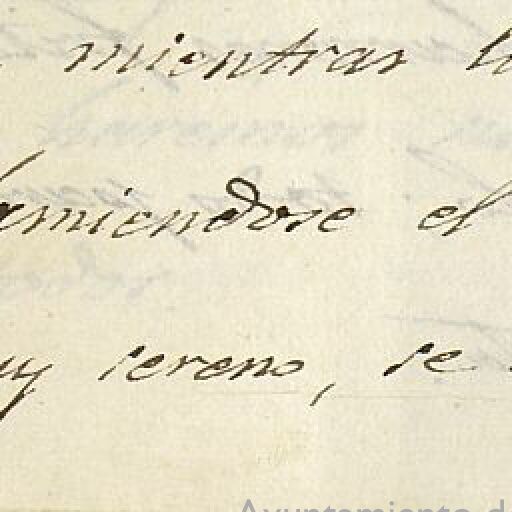 mientras
lamiendose el
sereno, se
Ayuntamiento de